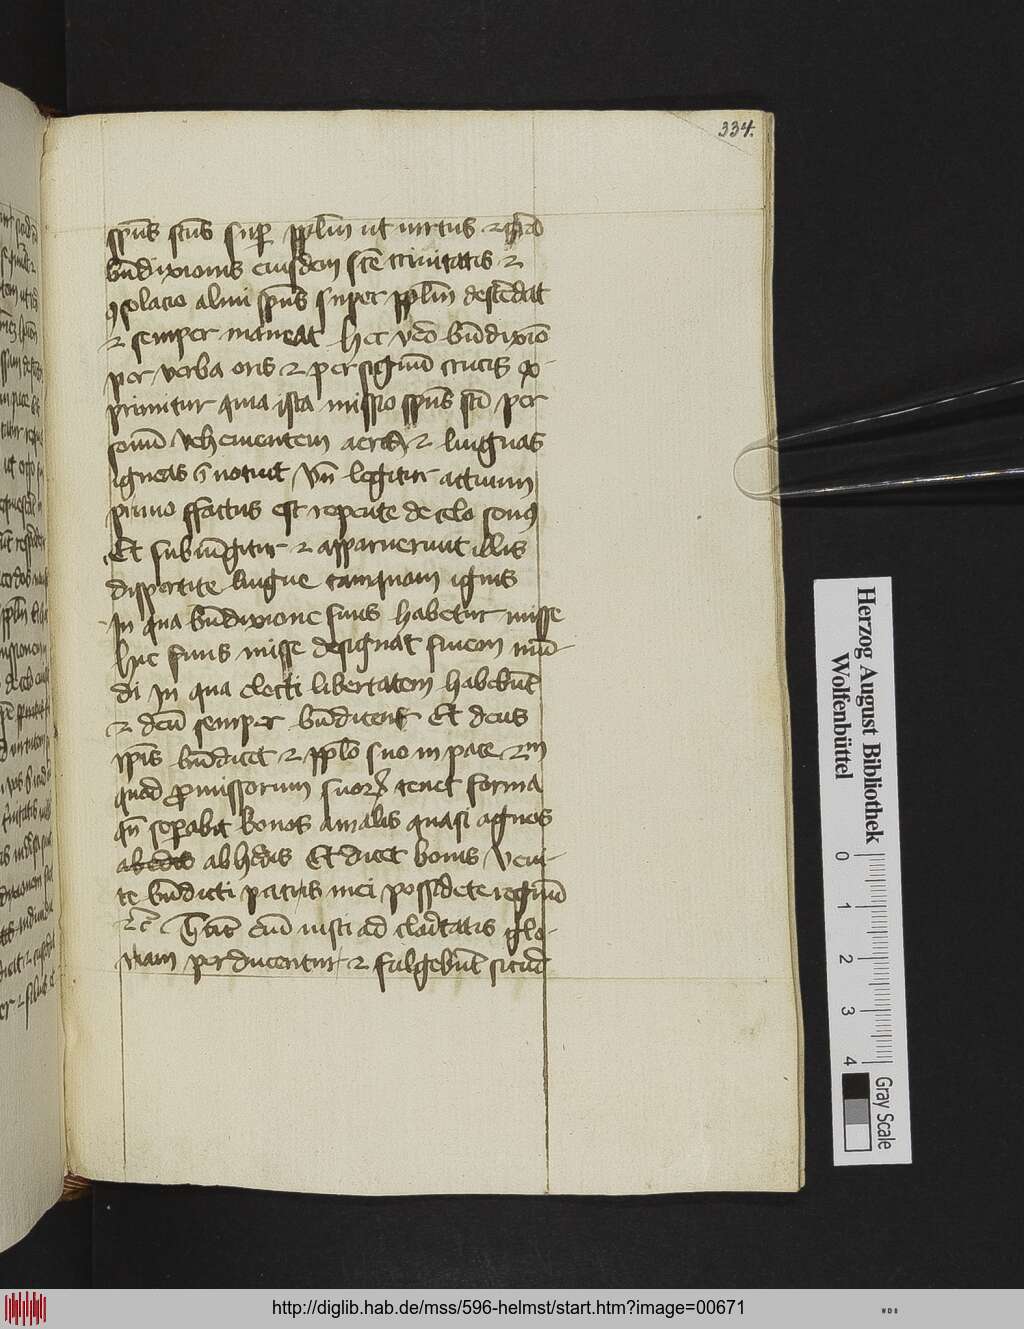 334.
spūs scūs sup ppl̄m ut virtus ⁊ grad
bn̄dixionis eiusdem scē trinitatis ⁊
ꝯsolacio almi spūs super ppl̄m descēdat
⁊ semper maneat hec vero bn̄dixio
per verba oris ⁊ per signū crucis ex-
primitur quia ista missio spūs scī per
sonū vehementem aeris ⁊ linguas
igneas īnotuit Vn̄ legitur actuum
primo ffactus est repente de celo sonꝯ
Et subiūgitur ⁊ apparuerunt illis
dispertite lingue tamquam ignis
In qua bn̄dixione finis habetur misse
hic finis misse designat finem mū-
di In qua electi libertatem habebūt
⁊ deū semper bn̄dicent Et deus
ipīs bn̄dicet ⁊ pplo suo in pace ⁊m
quod promissorum suorꝝ tenet forma
qn̄ sepabit bonos a malis quasi agnos
ab edis ab hedis Et dicet bonis Veni-
te bn̄dicti patris mei possidete regnū
⁊c̄ Tūc eni iusti ad claritatis glo-
riam perducentur ⁊ fulgebūt sicud
Herzog August Bibliothek
Wolfenbüttel
0 1 2 3 4
Gray Scale
http://diglib.hab.de/mss/596-helmst/start.htm?image=00671